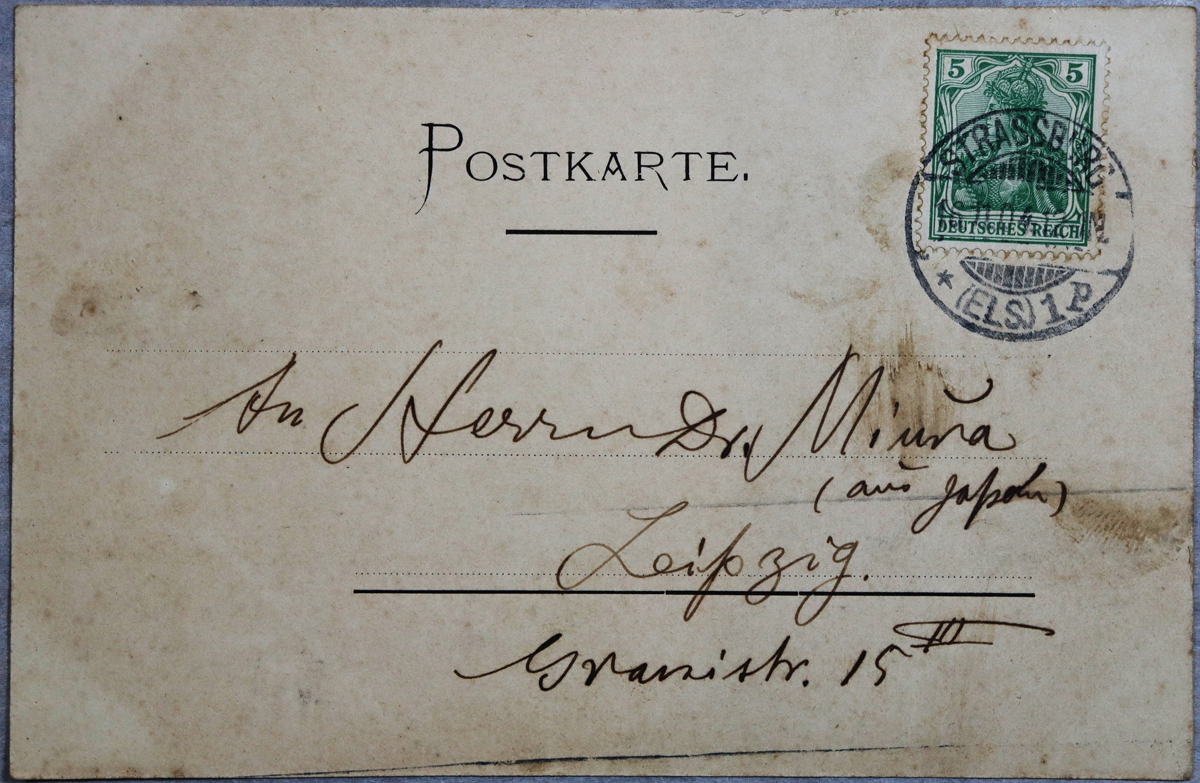 POSTKARTE.
5 5
DEUTSCHES REICH
STRASSBURG
* (ELS.) 1 P
An Herrn Dr. Miura
(aus Japan)
Leipzig.
15 III